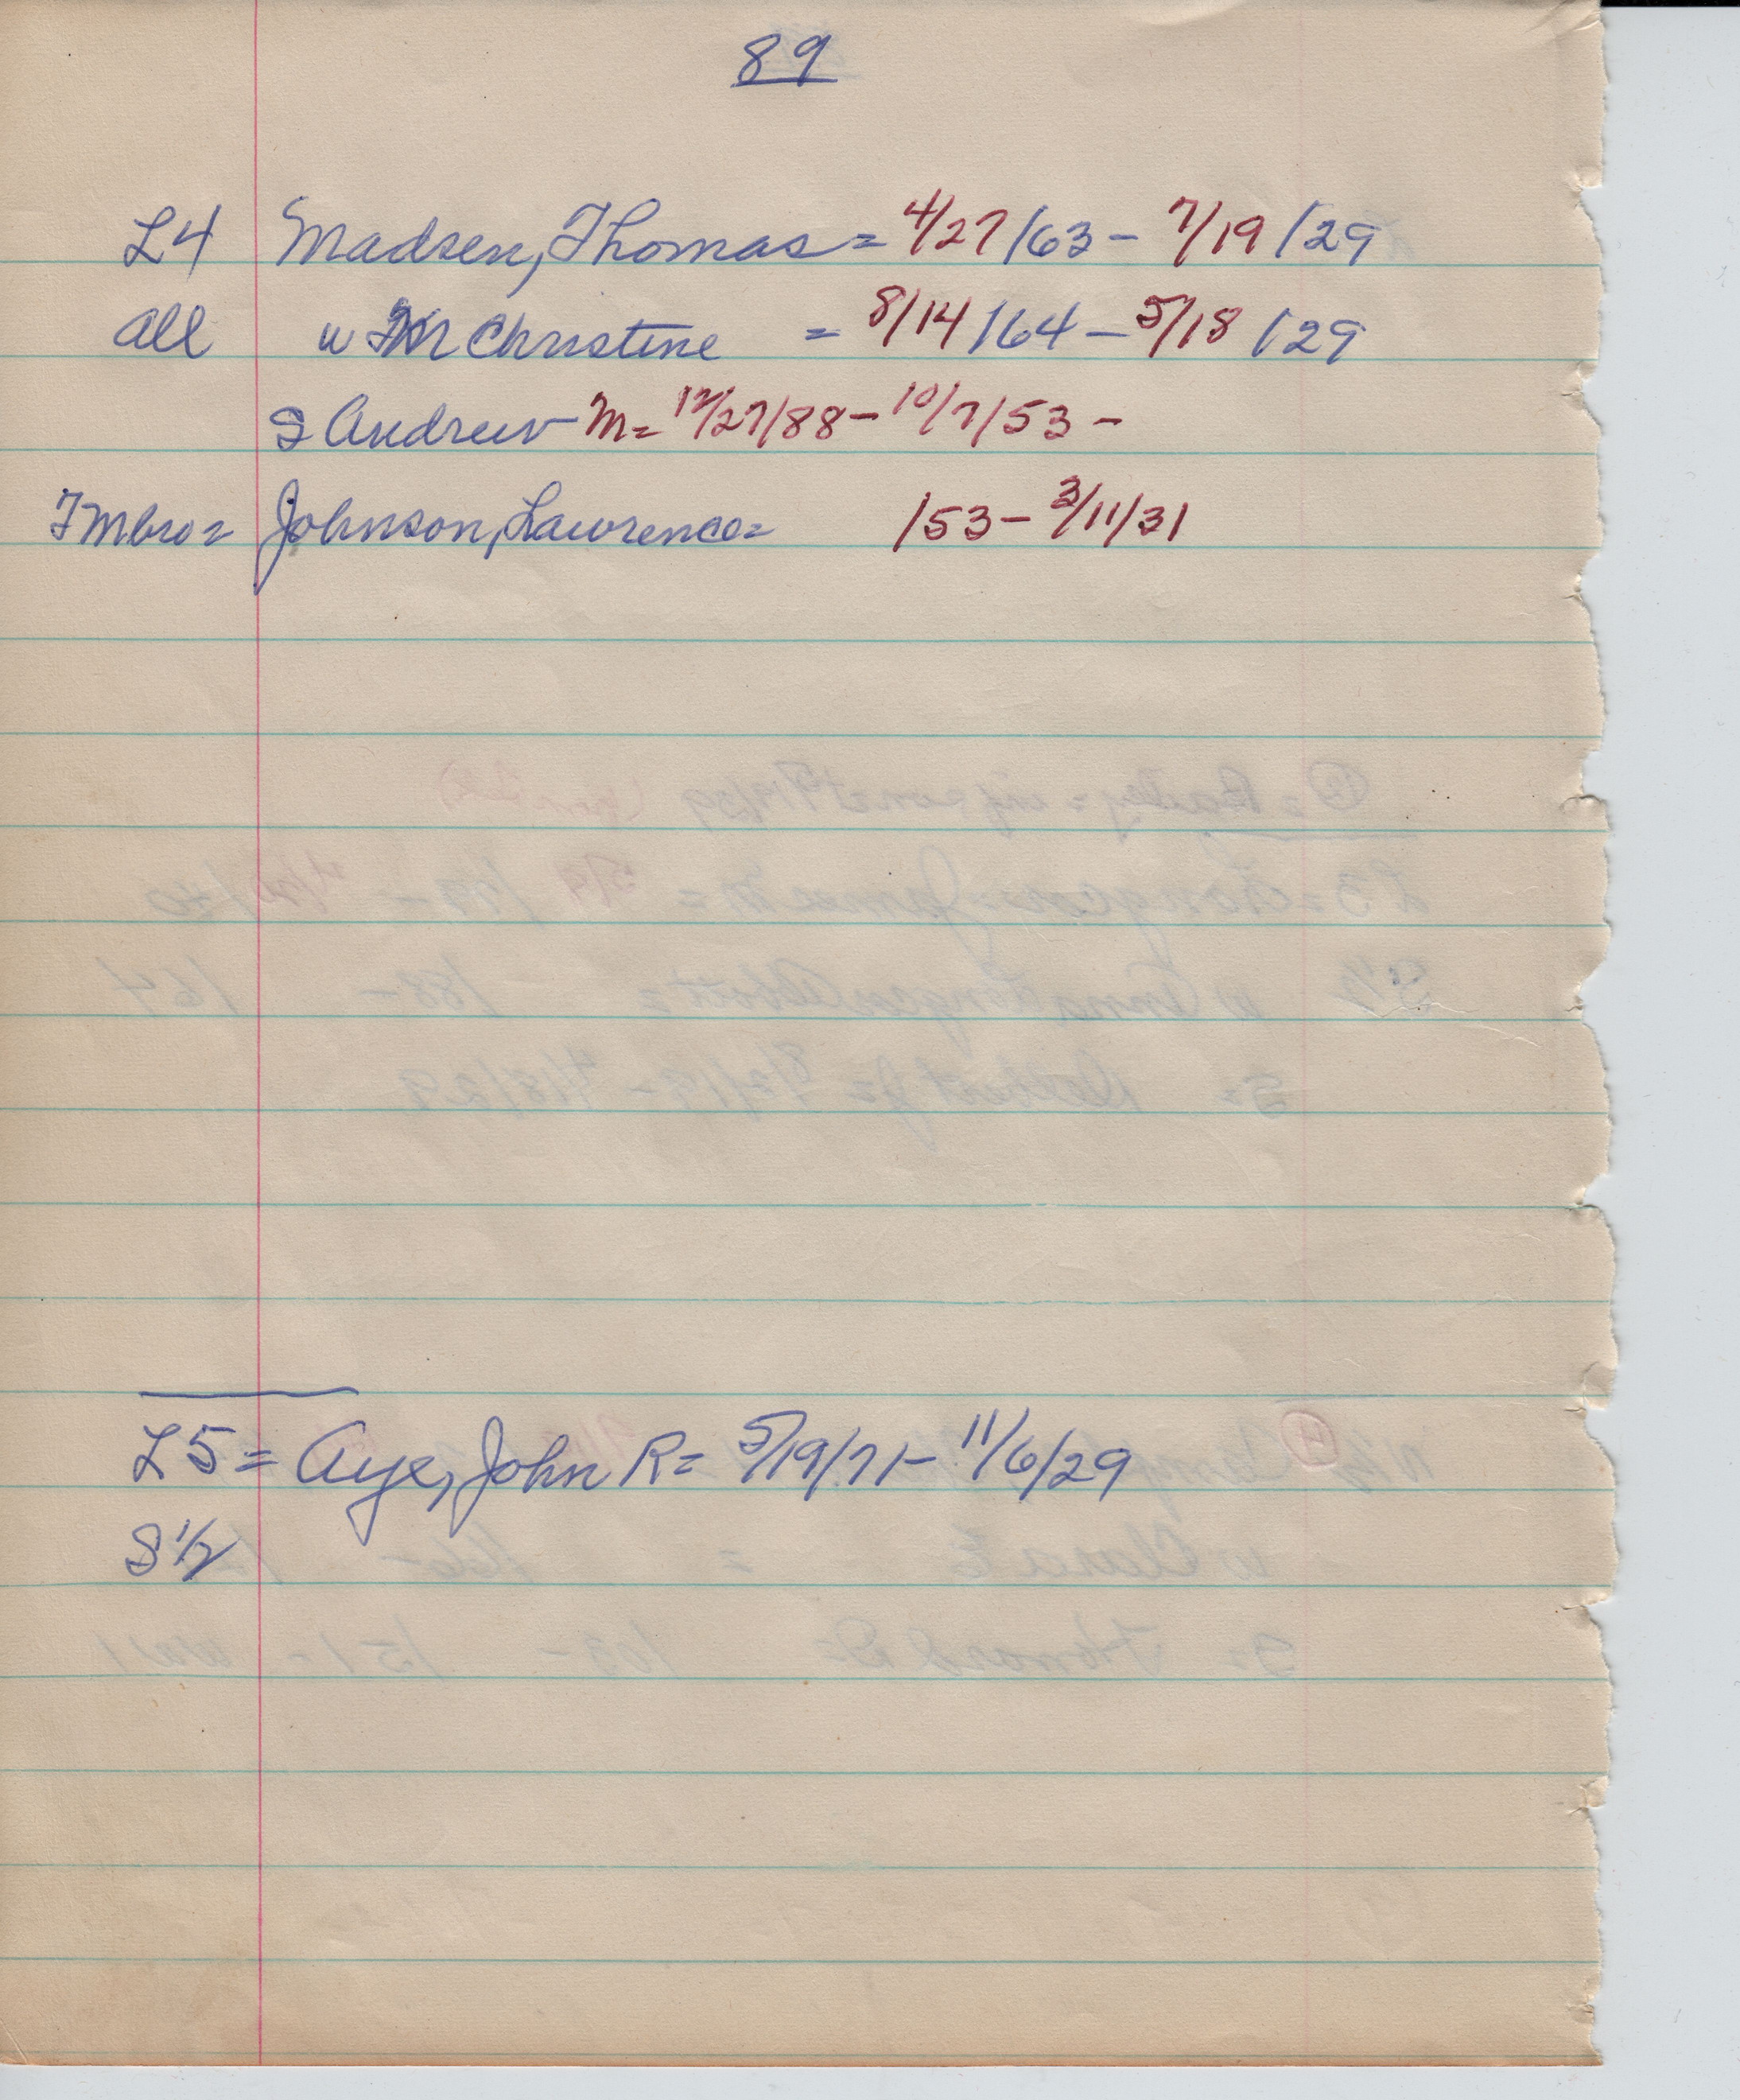 89
L4 Madsen, Thomas = 4/27/63 - 7/19/29
all w Christine = 8/14/64 - 5/18/29
S Andrew M = 12/27/88 - 10/7/53 -
TM bro = Johnson, Lawrence = /53 - 3/11/31
L5 = Aye, John R = 5/19/71 - 11/6/29
S 1/2